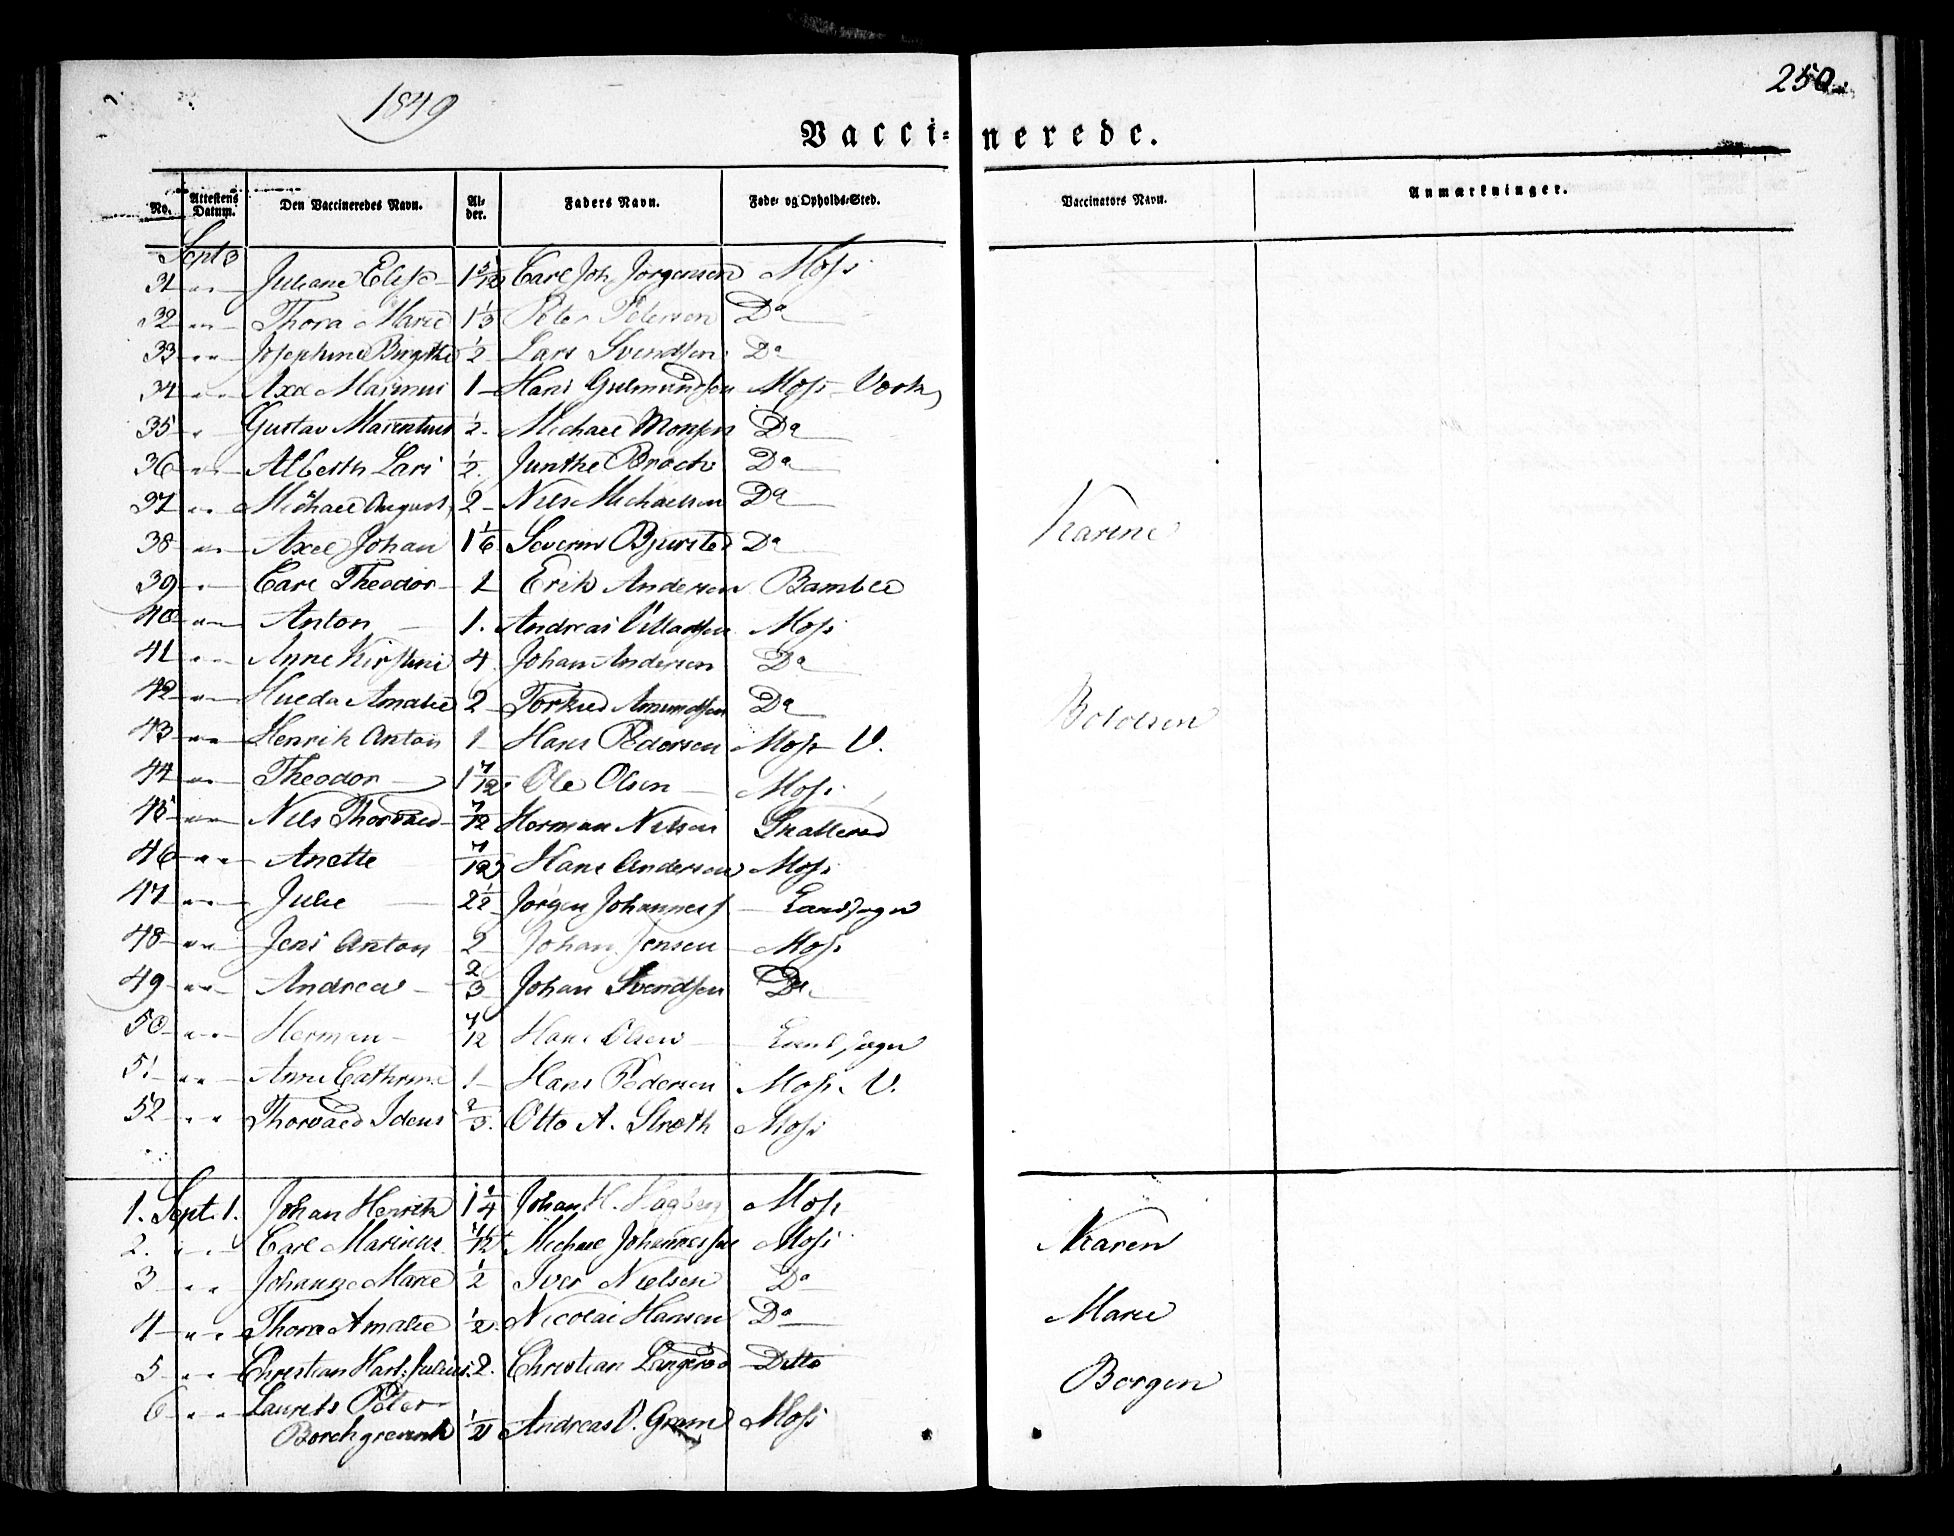 1849
250.
Vaccinerede.
No. Attestens Datum. Den Vaccineredes Navn. Alder. Faders Navn. Føde- og Opholds-Sted. Vaccinators Navn. Anmærkninger.
Sept 3
31 " Juliane Elise 1 5/12 Carl Joh. Jørgensen Moss
32 " Thora Marie 1 1/3 Peter Pedersen Do
33 " Josephine Birgithe 1/2 Lars Svendsen Do
34 " Marinus 1 Hans Gulmundsen Moss Værk
35 " Gustav Marentius 1/2 Michael Monsen Do
36 " Alberth Lars 1/2 Do
37 " Michael August 2 Nils Michaelsen Do
38 " Axel Johan 1 1/6 Severin Do
39 " Carl Theodor 1 Erik Andersen Bamble
40 " Anton 1. Andreas Moss
41 " Anne Kirstine 4 Johan Andersen Do
42 " Hulda Amalie 2 Torkild Amundsen Do
43 " Henrik Anton 1 Hans Pedersen Moss V.
44 " Theodor 1 7/12 Ole Olsen Moss
45 " Nils Thorvald 7/12 Herman Nilsen
46 " Anette 7/12 Hans Andersen Moss
47 " Julie 2 1/2 Jørgen Johanness Landsogn
48 " Jens Anton 2 Johan Jensen Moss
49 " Andreas 2/3 Johan Svendsen Do
50 " Herman 7/12 Hans Olsen Landsogn
51 " Anne Cathrine 1 Hans Pedersen Moss V.
52 " Thorvald 2/3 Otto A. Moss
Karine
1. Sept. 1. Johan Henrik 1 1/4 Johan H. Hagberg Moss
2. " Carl Marinus Michael Johannessen Moss
3 " Johanne Marie 1/2 Iver Nielsen Do
4 " Thora Amalie 1/2 Nicolai Hansen Do
5 " Christian Julius 2. Christian Ditto
6 " Laurits Peter
Borchgrevink 1/2 Andreas Moss
Karen
Marie
Borgen